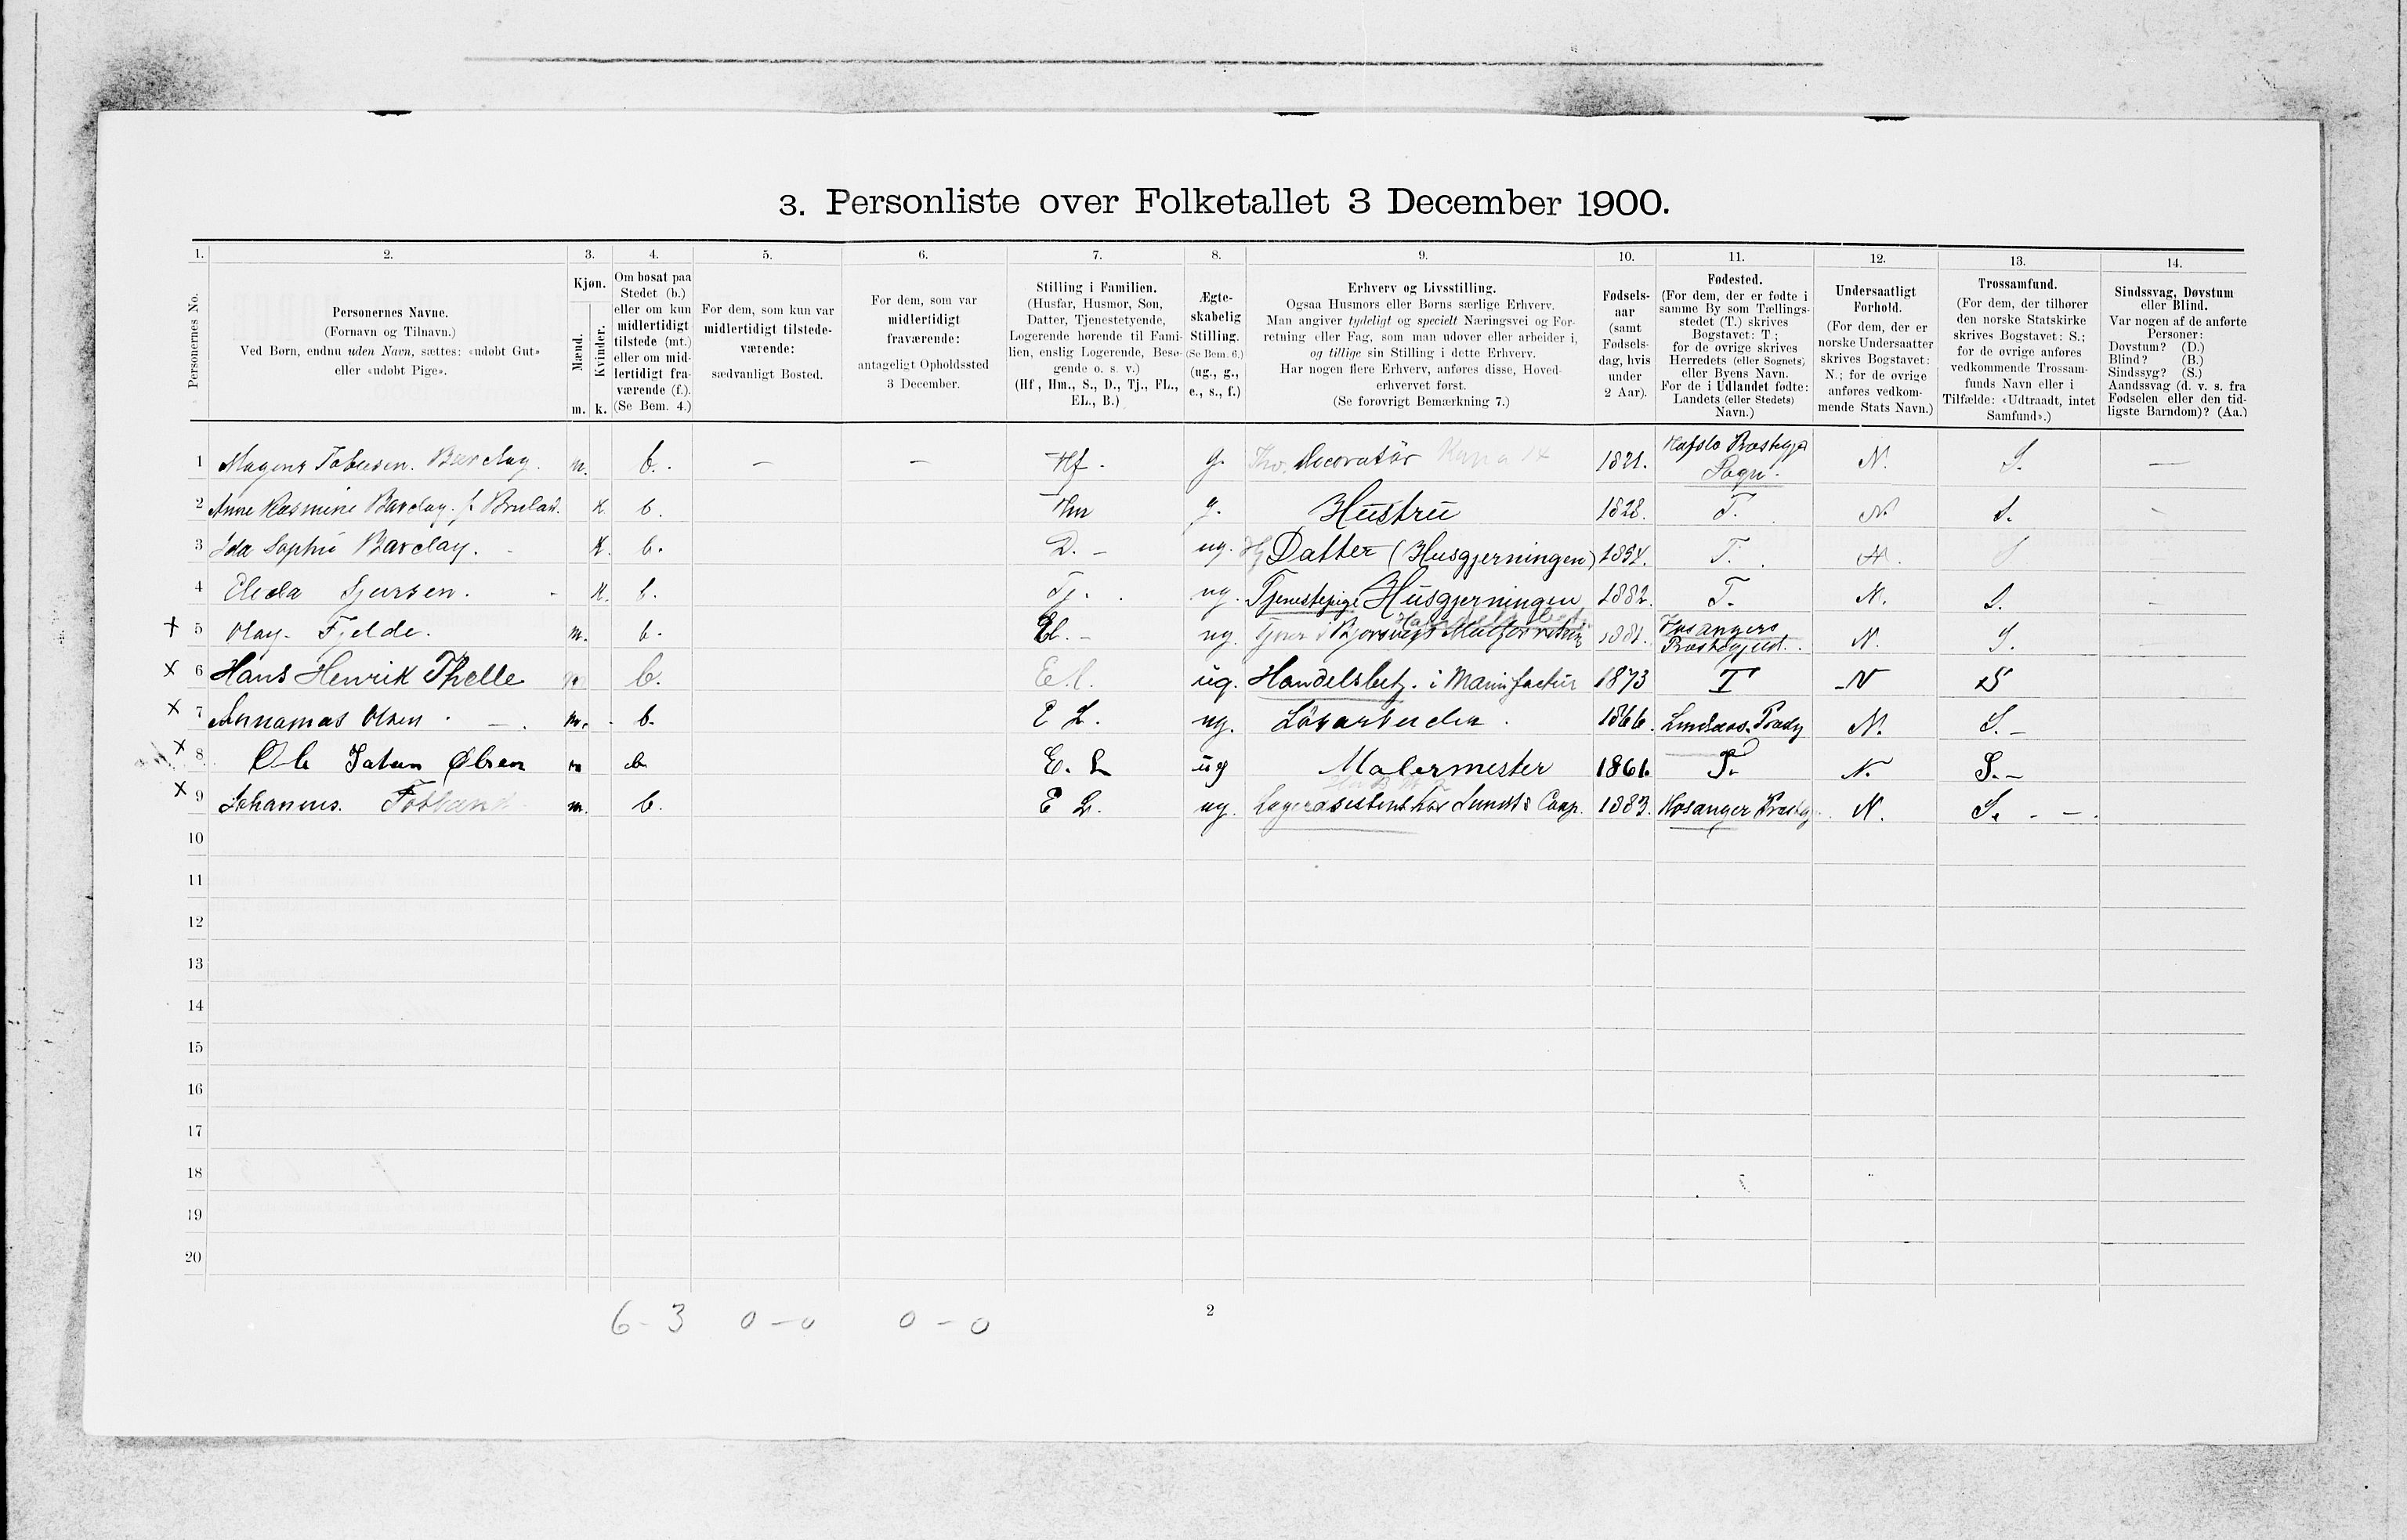 3. Personliste over Folketallet 3 December 1900.
1. 2. 3. 4. 5. 6. 7. 8. 9. 10. 11. 12. 13. 14.
Personernes No.
Personernes Navne.
(Fornavn og Tilnavn.)
Ved Børn, endnu uden Navn, sættes: «udøbt Gut»
eller «udøbt Pige».
Kjøn.
Mænd.
Kvinder.
m. k.
Om bosat paa
Stedet (b.)
eller om kun
midlertidigt
tilstede (mt.)
eller om mid-
lertidigt fra-
værende (f.).
(Se Bem. 4.)
For dem, som kun var
midlertidigt tilstede-
værende:
sædvanligt Bosted.
For dem, som var
midlertidigt
fraværende:
antageligt Opholdssted
3 December.
Stilling i Familien.
(Husfar, Husmor, Søn,
Datter, Tjenestetyende,
Logerende hørende til Fami-
lien, enslig Logerende, Besø-
gende o. s. v.)
(Hf., Hm., S., D., Tj., FL.,
EL., B.)
Ægte-
skabelig
Stilling.
(Se Bem. 6.)
(ug., g.,
e., s., f.)
Erhverv og Livsstilling.
Ogsaa Husmors eller Børns særlige Erhverv.
Man angiver tydeligt og specielt Næringsvei og For-
retning eller Fag, som man udøver eller arbeider i,
og tillige sin Stilling i dette Erhverv.
Har nogen flere Erhverv, anføres disse, Hoved-
erhvervet først.
(Se forøvrigt Bemærkning 7.)
Fødsels-
aar
(samt
Fødsels-
dag, hvis
under
2 Aar).
Fødested.
(For dem, der er fødte i
samme By som Tællings-
stedet (T.) skrives
Bogstavet: T;
for de øvrige skrives
Herredets (eller Sognets)
eller Byens Navn.
For de i Udlandet fødte:
Landets (eller Stedets)
Navn.)
Undersaatligt
Forhold.
(For dem, der er
norske Undersaatter
skrives Bogstavet:
N.; for de øvrige
anføres vedkom-
mende Stats Navn.)
Trossamfund.
(For dem, der tilhører
den norske Statskirke
skrives Bogstavet: S.;
for de øvrige anføres
vedkommende Trossam-
funds Navn eller i
Tilfælde: «Udtraadt, intet
Samfund».)
Sindssvag, Døvstum
eller Blind.
Var nogen af de anførte
Personer:
Døvstum? (D.)
Blind? (B.)
Sindssyg? (S.)
Aandssvag (d. v. s. fra
Fødselen eller den tid-
ligste Barndom)? (Aa.)
1 Barclay. m. b. – – Hf. g. Decoratør 1821. Hafslo Præstegjd Sogn. N. S. —
2 Anne Rasmine Barclay. f. K. b. Hm g. Hustru 1828. T. N. S. -
3 Ida Sophie Barclay. K. b. D. – ug. Datter (Husgjerningen) 1854. T. N. S
4 Eleda Sjursen. K. b. Tj. ug. Tjenestepige Husgjerningen 1882. T. N. S.
+ 5 Olay. Fjelde. m. b. El. – ug. 1881. Hosangers Præstegjeld. N. S.
x 6 Hans Henrik Thelle m b. E.l. ug. Handelsbetj. i Manufactur 1873 T N S
x 7 Olsen m. b. E L. ug. Løsarbeider. 1866. Lindaas N. S. –
x 8 Ole Olsen m b E. L ug Malermester 1861. T. N. S. –
x 9 Johannes. Fotland m. b. E L. ug. Lagerasistent hos Sundts Comp. 1883. Hosanger Præstg. N. S. - –
10
11
12
13
14
15
16
17
18
19
20
6 - 3 0 - 0 0 - 0
2